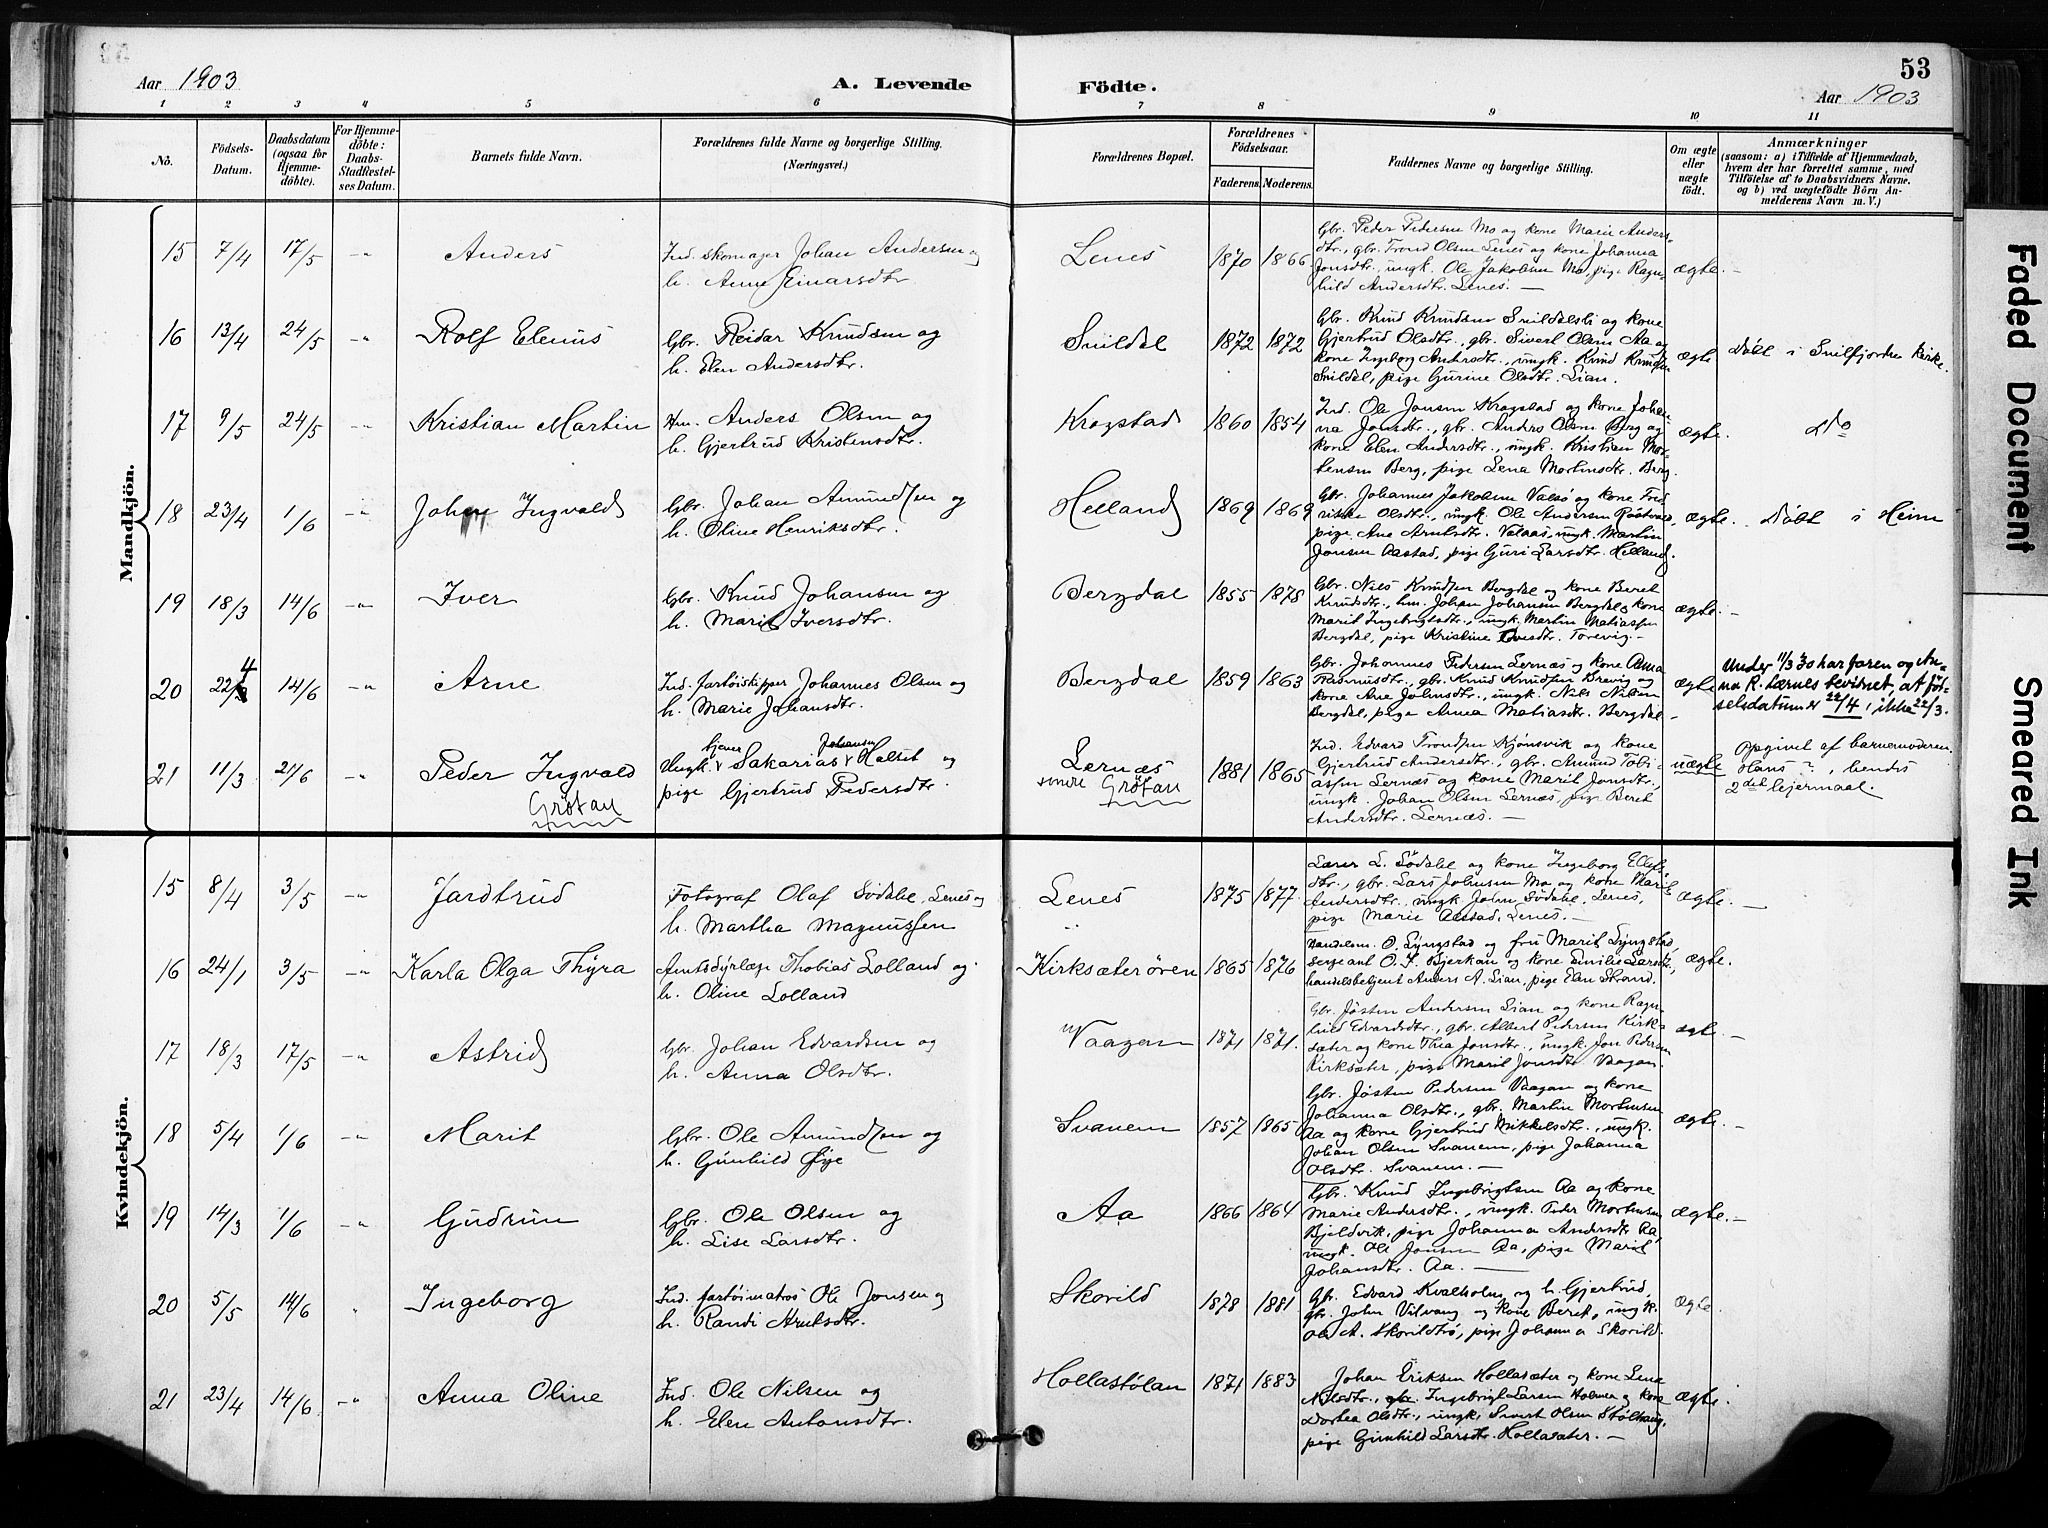 Aar 1903
A. Levende
Födte.
53
Aar 1903
1 2 3 4 5 6 7 8 9 10 11
No.
Födsels-
Datum.
Daabsdatum
(ogsaa for
Hjemme-
döbte).
For Hjemme-
döbte:
Daabs-
Stadfæstel-
ses Datum.
Barnets fulde Navn.
Forældrenes fulde Navne og borgerlige Stilling.
(Næringsvei.)
Forældrenes Bopæl.
Forældrenes
Födselsaar.
Faderens.
Moderens.
Faddernes Navne og borgerlige Stilling.
Om ægte
eller
uægte
födt.
Anmærkninger
(saasom: a) i Tilfælde af Hjemmedaab,
hvem der har forrettet samme, med
Tilföielse af to Daabsvidners Navne,
og b) ved uægtefödte Börn An-
melderens Navn m. V.)
Mandkjön.
15 7/4 17/5 -"- Anders
Ind. skomager Johan Andersen og
h. Anne Einarsdtr
Lenes 1870 1866
Gbr. Peder Pedersen Mo og kone Marie Anders-
dtr., gbr. Trond Olsen Lenes og kone Johanna
Jonsdtr., ungk. Ole Jakobsen Mo, pige Ragn-
hild Andersdtr. Lenes. —
ægte. —
16 13/4 24/5 -"- Rolf Elenus
Gbr. Reidar Knudsen og
h. Elen Andersdtr.
Snildal 1872 1872
Gbr. Knud Knudsen Snildalsli og kone
Gjertrud Olsdtr., gbr. Sivert Olsen Aa og
kone Ingeborg Andersdtr., ungk. Knud Knudsen
Snildal, pige Gurine Olsdtr. Lian.
ægte Döbt i Snilfjorden kirke.
17 9/5 24/5 -"- Kristian Martin
Hm. Anders Olsen og
h. Gjertrud Kristensdtr.
Krogstad 1860 1854
Ind. Ole Jonsen Krogstad og kone Johan-
na Jonsdtr., gbr. Anders Olsen Berg og
kone Elen Andersdtr., ungk. Kristian Mor-
tensen Berg, pige Lena Mortensdtr. Berg.
ægte. Do
18 23/4 1/6 -"- Johan Ingvald
Gbr. Johan Amundsen og
h. Oline Henriksdtr.
Helland 1869 1869
Gbr. Johannes Jakobsen Valsø og kone Fred
rikke Olsdtr., ungk. Ole Andersen
pige Ane Arntsdtr. Valaas, ungk. Martin
Jonsen Aastad, pige Guri Larsdtr. Helland.
ægte. Döbt i Heim
19 18/3 14/6 -"- Iver
Gbr. Knud Johansen og
h. Marit Iversdtr.
Bergdal 1855 1878
Gbr. Nils Knudsen Bergdal og kone Beret
Knudsdtr., hm. Johan Johansen Bergdal & kone
Marit Ingebrigtsdtr., ungk. Martin Matiassen
Bergdal, pige Kristine Tevig. —
ægte. —
20 22/4 14/6 -"- Arne
Ind. fartöiskipper Johannes Olsen og
h. Marie Johansdtr.
Bergdal 1859 1863
Gbr. Johannes Pedersen Lernæs og kone Anna
Rasmusdtr., gbr. Knud Knudsen Brevig og
kone Ane Johnsdtr., ungk. Nils Nilsen
Bergdal, pige Anna Matiasdtr. Bergdal. —
ægte
Under 11/3 30 har faren og An-
na R. Lernes bevidnet, at föd-
selsdatum er 22/4, ikke 22/3.
21 11/3 21/6 -"- Peder Ingvald
Grötan
Ungk. Sakarias Johansen Halset og
pige Gjertrud Pedersdtr.
Lernæs
senere Grötan
1881 1865
Ind. Edvard Trondsen Kjönsvik og kone
Gjertrud Andersdtr., gbr. Amund Tobi-
assen Lernæs og kone Marit Jonsdtr.,
ungk. Johan Olsen Lernæs, pige Beret
Andersdtr. Lernæs. —
uægte
Opgivet af barnemoderen.
Hans ?, hendes
2det leiermaal.
Kvindekjön.
15 8/4 3/5 -"- Jardtrud
Fotograf Olaf Södahl, Lenes og
h. Martha Magnussen
Lenes 1875 1877
Lærer L. Södahl og kone Ingeborg Ellefs-
dtr., gbr. Lars Johnsen Mo og kone Marit
Andersdtr., ungk John Södahl, Lenes,
pige Marie Aastad, Lenes. —
ægte. —
16 24/1 3/5 -"- Karla Olga Thyra
Amtsdyrlæge Thobias Lolland og
h. Oline Lolland
Kirksæterören 1865 1876
Handelsm. O. Lyngstad og fru Marit Lyngstad,
sergeant O. J. Bjerkan og kone Emilie Larsdtr.,
handelsbetjent Anders A. Lian, pige Elen Strand.
ægte.
17 18/3 17/5 -"- Astrid
Gbr. Johan Edvardsen og
h. Anna Olsdtr.
Vaagan 1871 1871.
Gbr. Jösten Andersen Lian og kone Ragn-
hild Edvardsdtr., gbr. Albert Pedersen Kirk-
sæter og kone Thea Jonsdtr., ungk. Jon Pedersen
Kirksæter, pige Marit Jonsdtr. Vaagan.
ægte. —
18 5/4 1/6 -"- Marit
Gbr. Ole Amundsen og
h. Gunhild Öye
Svanem 1857 1865
Gbr. Jösten Pedersen Vaagan og kone
Johanna Olsdtr., gbr. Martin Mortensen
Aa og kone Gjertrud Mikkelsdtr., ungk.
Johan Olsen Svanem, pige Johanna
Olsdtr. Svanem. —
ægte. —
19 14/3 1/6 -"- Gudrun
Gbr. Ole Olsen og
h. Lise Larsdtr.
Aa 1866 1864
Gbr. Knud Ingebrigtsen Aa og kone
Marie Andersdtr., ungk. Peder Mortensen
Bjeldvik, pige Johanna Andersdtr Aa,
ungk. Ole Jonsen Aa, pige Marit
Johansdtr. Aa. —
ægte. —
20 5/5 14/6 " Ingeborg
Ind. fartöimatros Ole Jonsen og
h. Randi Arntsdtr.
Skorild 1878 1881
Gbr. Edvard Kvalholm og h. Gjertrud,
gbr. John Vilvang og kone Beret, ungk.
Ole A. Skorildtrö, pige Johanna Skorild.
ægte.
21 23/4 14/6 -"- Anna Oline
Ind. Ole Nilsen og
h. Elen Antonsdtr.
Hollastölan 1871 1883
Johan Eriksen Hollasæter og kone Lena
Nilsdtr., gbr. Ingebrigt Larsen Holmen og kone
Dortea Olsdtr., ungk. Sivert Olsen Stölhaug,
pige Gunhild Larsdtr. Hollasæter. —
ægte.
Faded Document
Smeared Ink